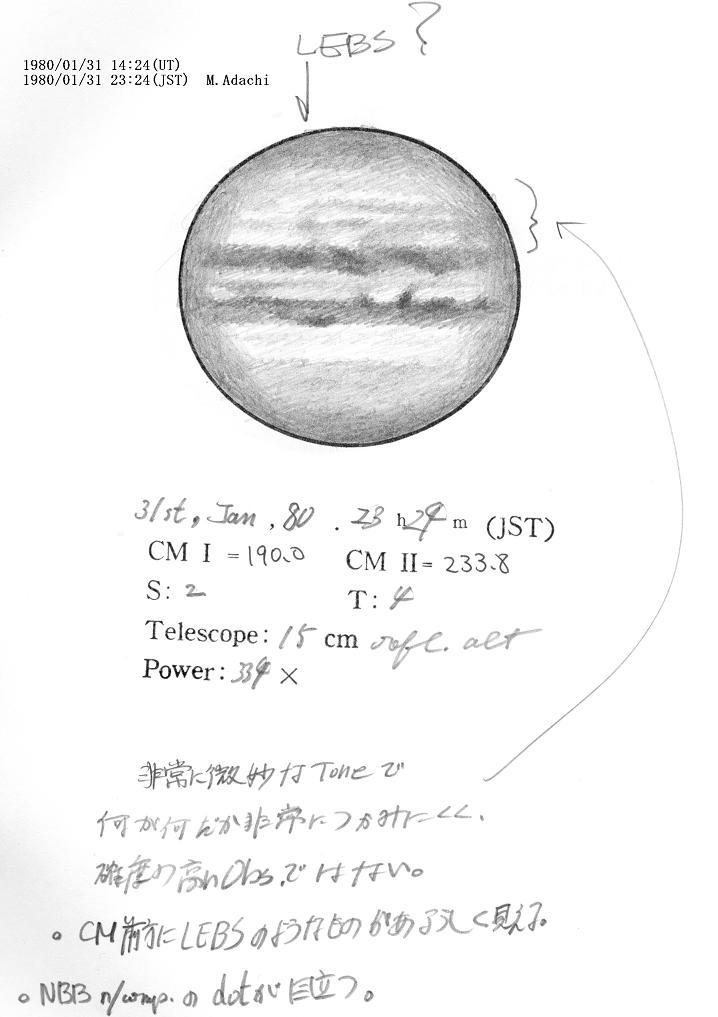 LEBS?
1980/01/31 14:24(UT)
1980/01/31 23:24(JST) M.Adachi
31st, Jan, 80 . 23 h 24 m (JST)
CM I =190.0 CM II= 233.8
S: 2 T: 4
Telescope: 15 cm refl. alt
Power: 334 ×
非常に微妙なToneで
何が何だか非常につかみにくく、
確度の高いObs.ではない。
。CM前方にLEBSのようなものがあるらしく見える。
。NBB n/comp. の dotが目立つ。